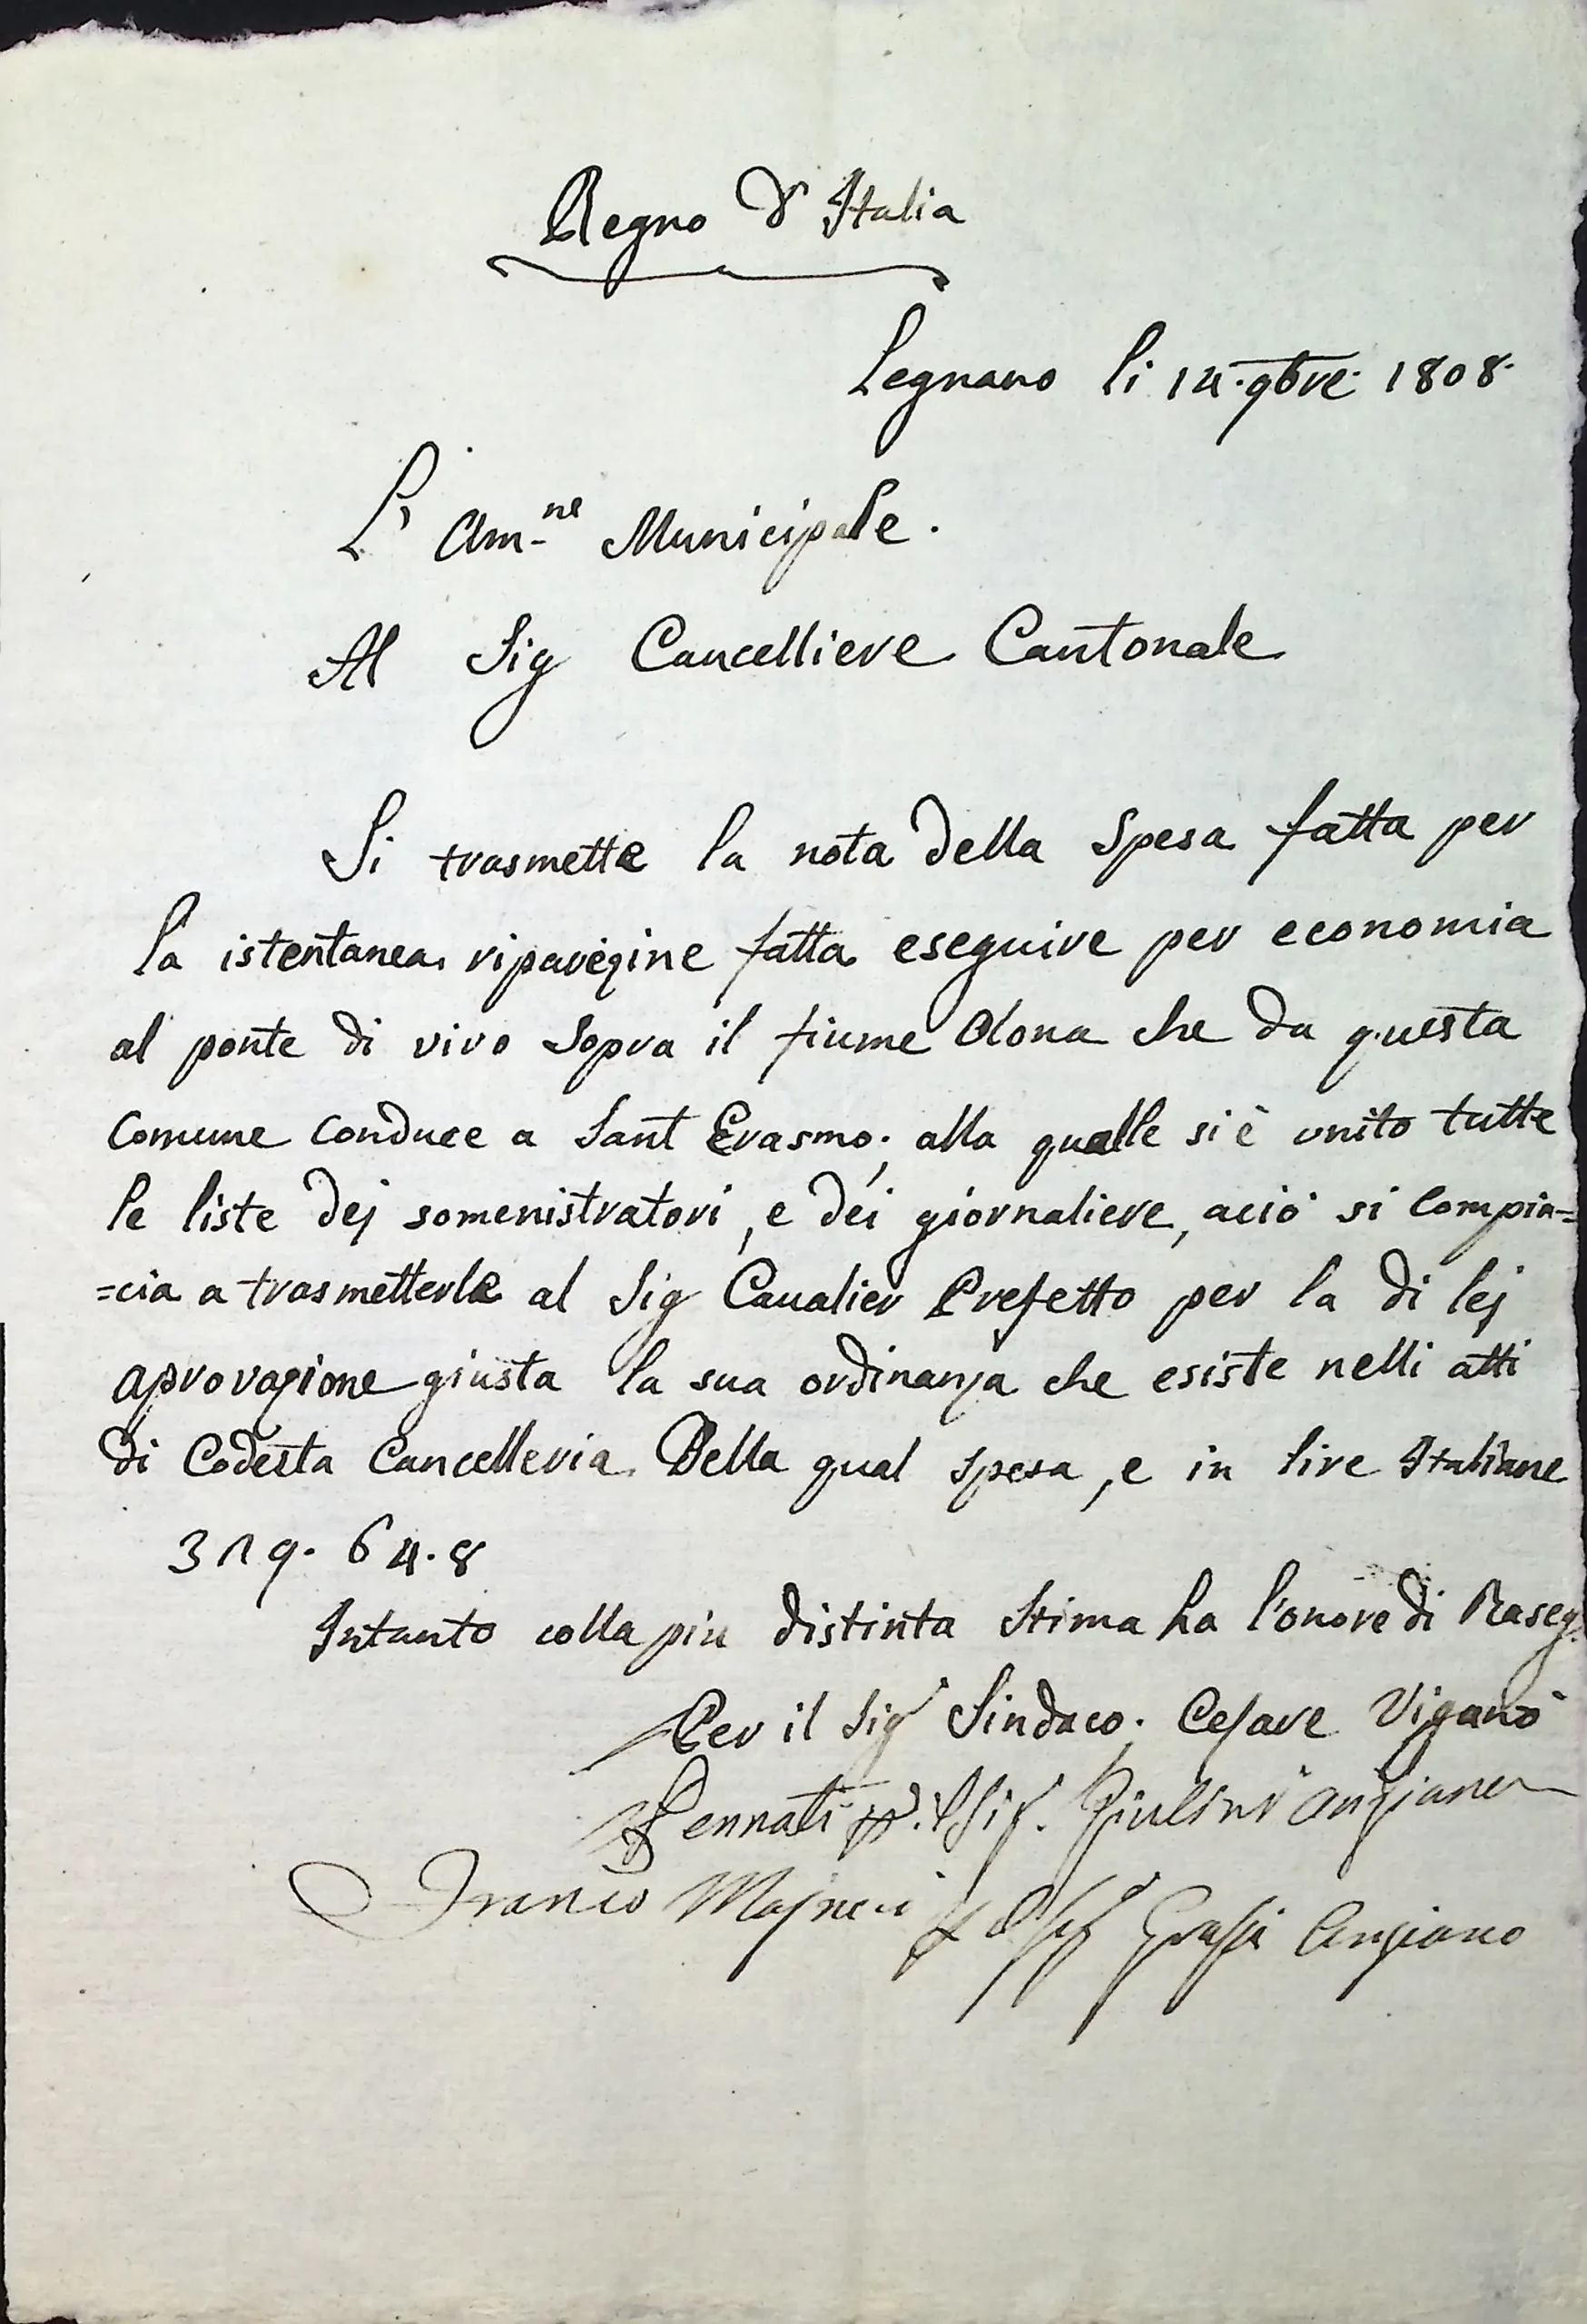 Regno d'Italia
Legnano li 14. 9bre. 1808.
L' Am.ne Municipale.
Al Sig Cancelliere Cantonale
Si trasmette la nota della Spesa fatta per
la istentanea riparazine fatta eseguire per economia
al ponte di vivo Sopra il fiume Olona che da questa
Comune Conduce a Sant Erasmo; alla qualle si è unito tutte
le liste dej somenistratori, e dei giornaliere, aciò si Compia=
=cia a trasmetterle al Sig Caualier Prefetto per la di lej
aprovazione giusta la sua ordinanza che esiste nelli atti
di Codesta Cancelleria. Della qual spesa, e in lire Italiane
319. 64. 8
Intanto colla piu distinta Stima ha l'onore di Raseg.
Per il Sig Sindaco. Cesare Viganò
Pennati p. il Sig. Giulini anziano
Franco il Sig Grassi Anziano